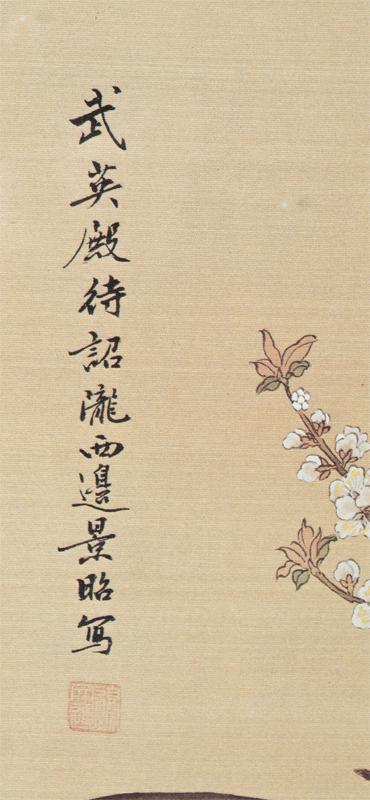 武英殿待詔瀧西邊景昭写